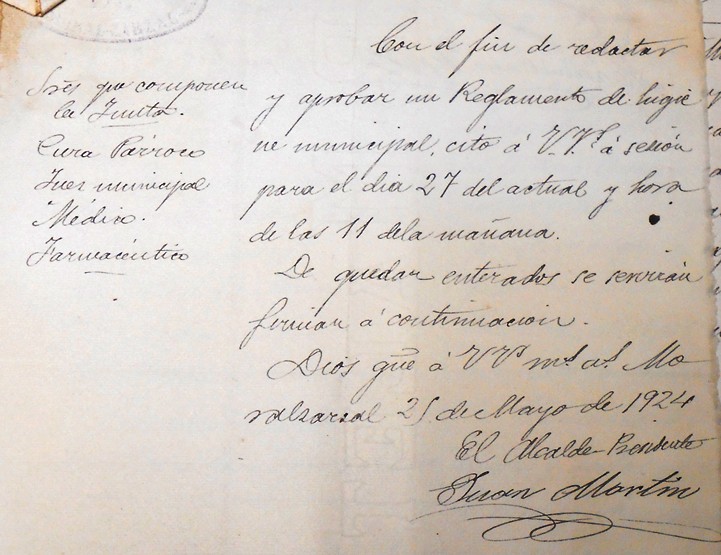 Sres que componen
la Junta.
Cura Párroco
Juez municipal
Médico.
Farmacéutico
Con el fin de redactar
y aprobar un Reglamento de higie
ne municipal, cito á V.V.s á sesión
para el dia 27 del actual y hora
de las 11 dela mañana.
De quedar enterados se servirán
firmar á continuacion.
Dios gue á VVs ms as. Mo
ralzarzal 25 de Mayo de 1924
El Alcalde-Presidente
Juan Martín